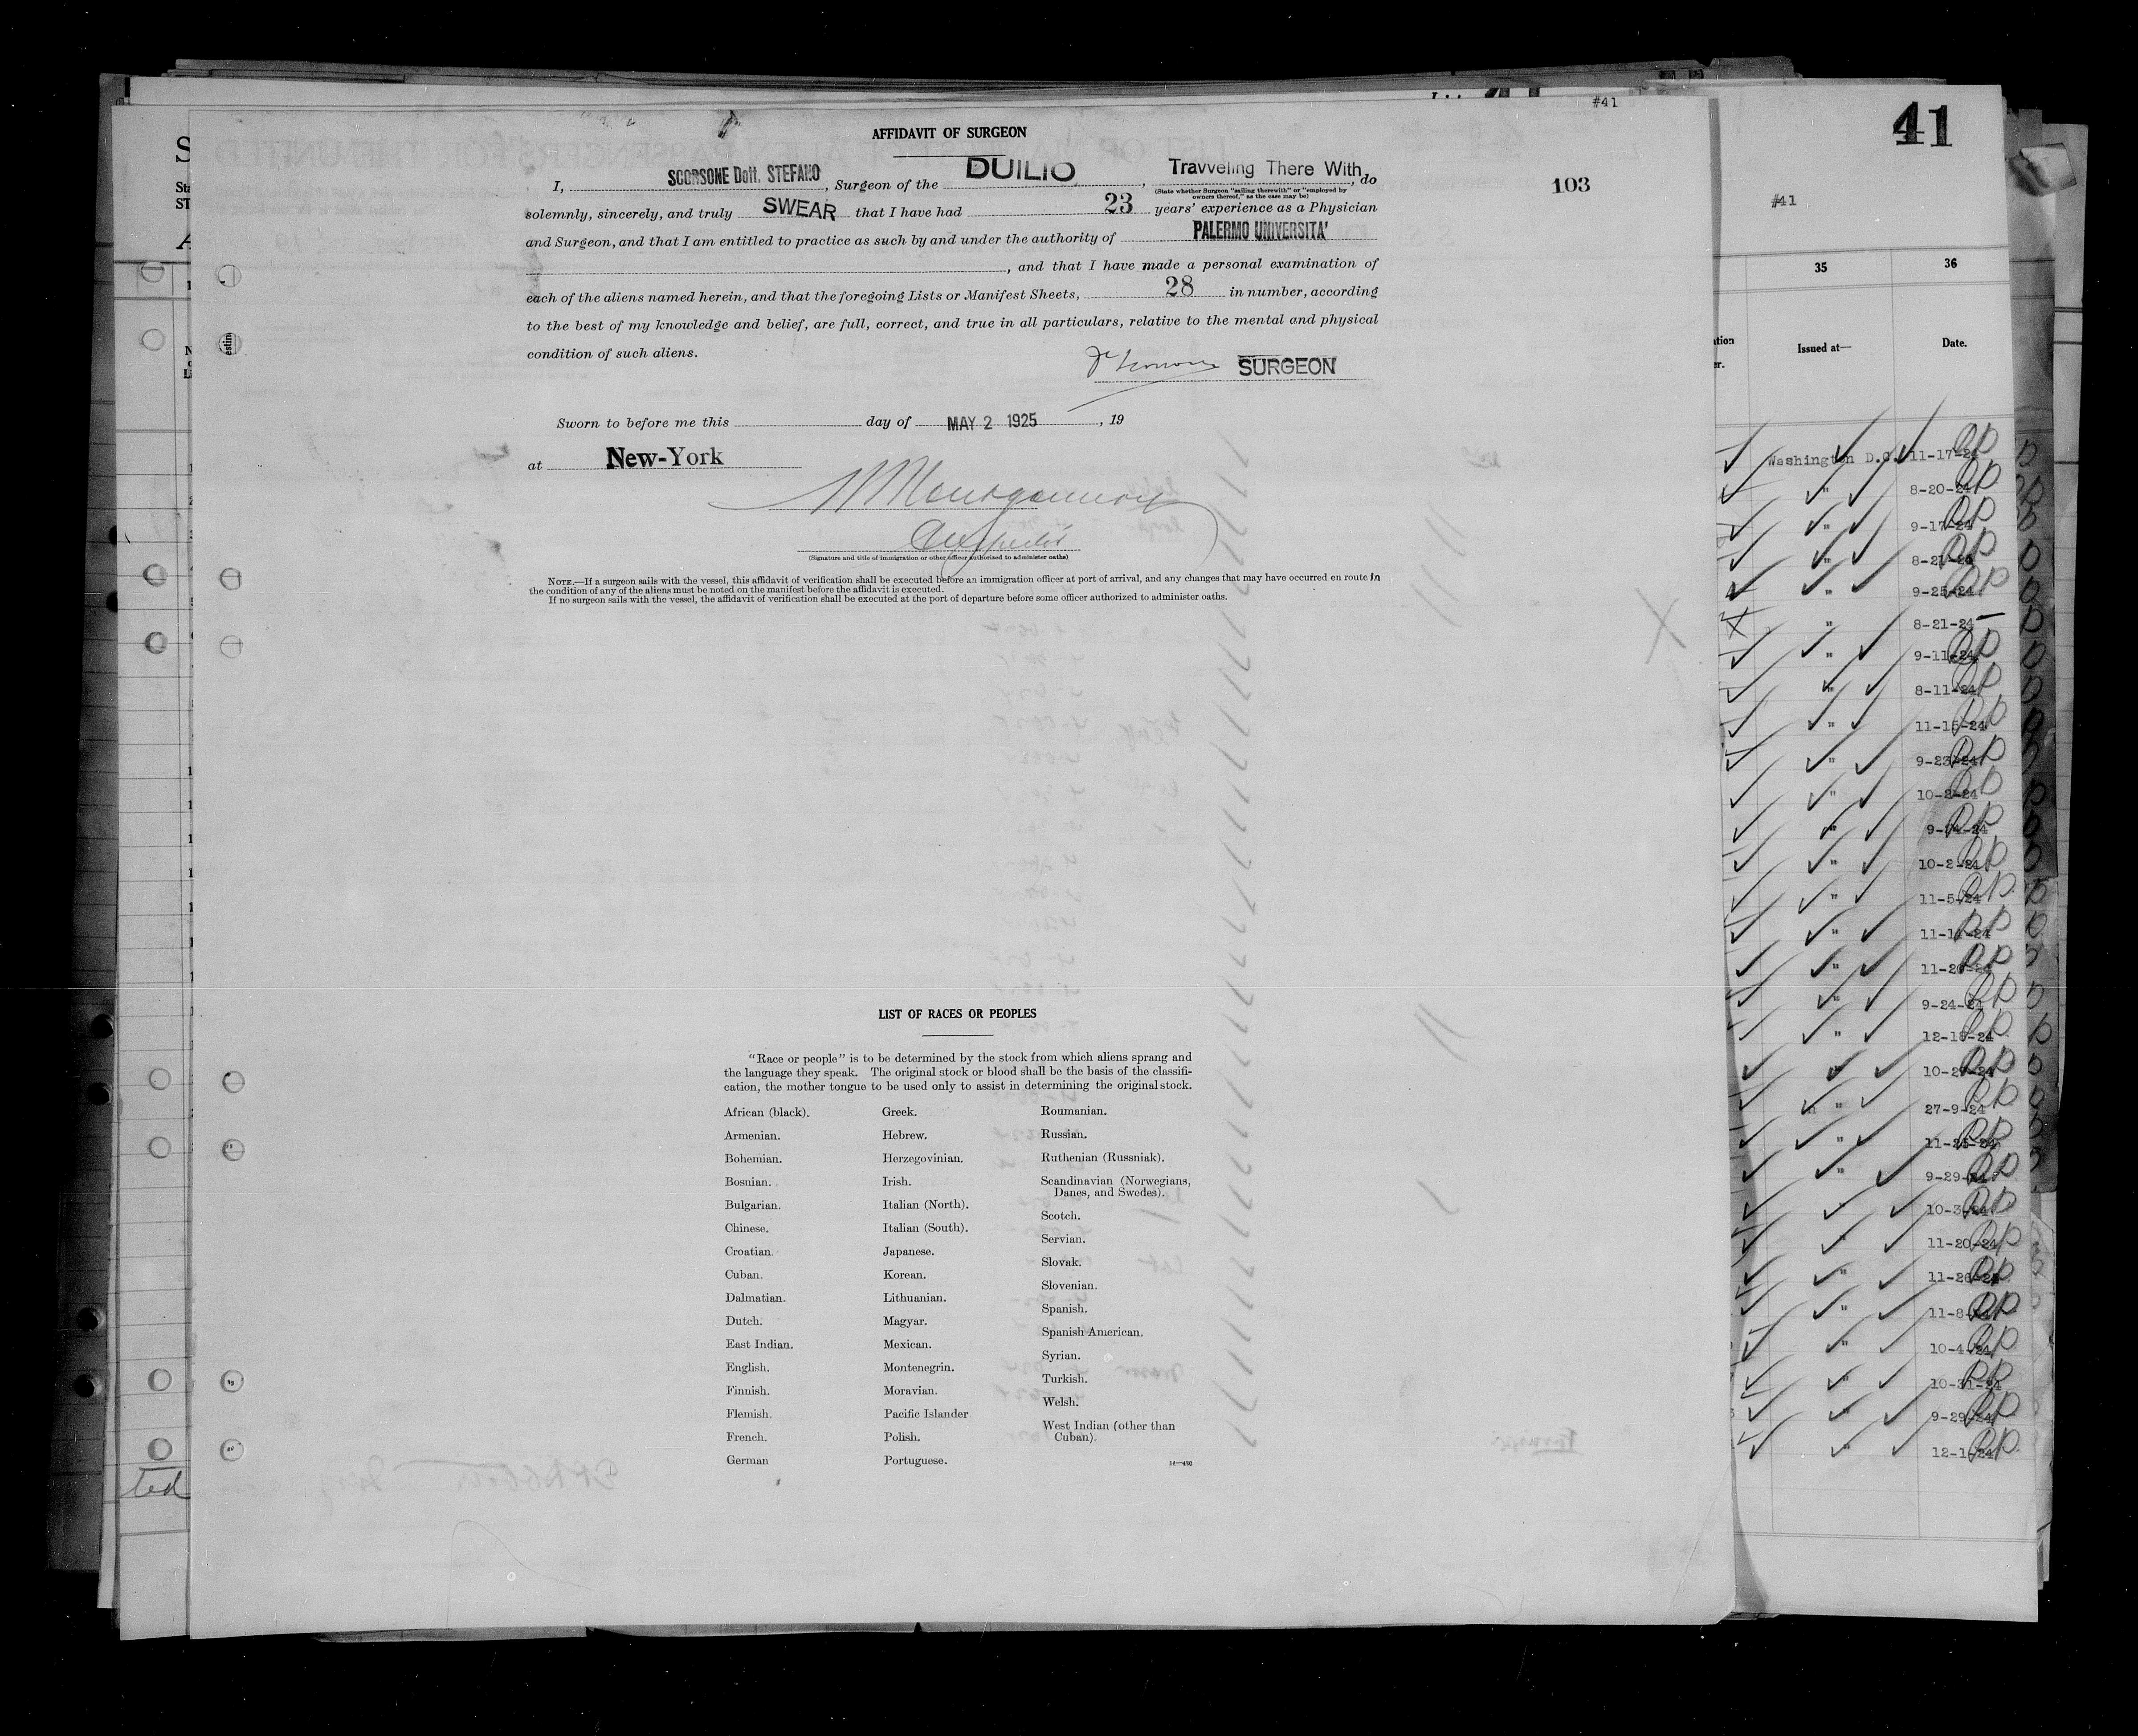 #41
41
AFFIDAVIT OF SURGEON
I, SCORSONE Dott. STEFANO, Surgeon of the DUILIO, Travveling There With, do
(State whether Surgeon "sailing therewith" or "employed by
owners thereof," as the case may be)
103
#41
solemnly, sincerely, and truly SWEAR that I have had 23 years' experience as a Physician
and Surgeon, and that I am entitled to practice as such by and under the authority of PALERMO UNIVERSITA'
, and that I have made a personal examination of
each of the aliens named herein, and that the foregoing Lists or Manifest Sheets, 28 in number, according
to the best of my knowledge and belief, are full, correct, and true in all particulars, relative to the mental and physical
condition of such aliens.
SURGEON
Sworn to before me this day of MAY 2 1925, 19
at New-York
Montgomery
(Signature and title of immigration or other officer authorized to administer oaths)
NOTE.—If a surgeon sails with the vessel, this affidavit of verification shall be executed before an immigration officer at port of arrival, and any changes that may have occurred en route in
the condition of any of the aliens must be noted on the manifest before the affidavit is executed.
If no surgeon sails with the vessel, the affidavit of verification shall be executed at the port of departure before some officer authorized to administer oaths.
LIST OF RACES OR PEOPLES
"Race or people" is to be determined by the stock from which aliens sprang and
the language they speak. The original stock or blood shall be the basis of the classifi-
cation, the mother tongue to be used only to assist in determining the original stock.
African (black).
Armenian.
Bohemian.
Bosnian.
Bulgarian.
Chinese.
Croatian.
Cuban.
Dalmatian.
Dutch.
East Indian.
English.
Finnish.
Flemish.
French.
German
Greek.
Hebrew.
Herzegovinian.
Irish.
Italian (North).
Italian (South).
Japanese.
Korean.
Lithuanian.
Magyar.
Mexican.
Montenegrin.
Moravian.
Pacific Islander
Polish.
Portuguese.
Roumanian.
Russian.
Ruthenian (Russniak).
Scandinavian (Norwegians,
Danes, and Swedes).
Scotch.
Servian.
Slovak.
Slovenian.
Spanish.
Spanish American.
Syrian.
Turkish.
Welsh.
West Indian (other than
Cuban).
35
36
Issued at—
Date.
Washington D.C. 11-17-24
" 8-20-24
" 9-17-24
"
" 9-25-24
" 8-21-24
" 9-11-24
" 8-11-24
" 11-15-24
" 9-23-24
" 10-2-24
" 9-24-24
" 10-2-24
" 11-5-24
" 11-11-24
" 11-20-24
" 9-24-24
" 12-18-24
" 10-27-24
" 27-9-24
" 11-25-24
" 9-29-24
" 10-3-24
" 11-20-24
" 11-26-24
" 11-8-24
" 10-4-24
" 10-31-24
" 9-29-24
" 12-1-24
ted